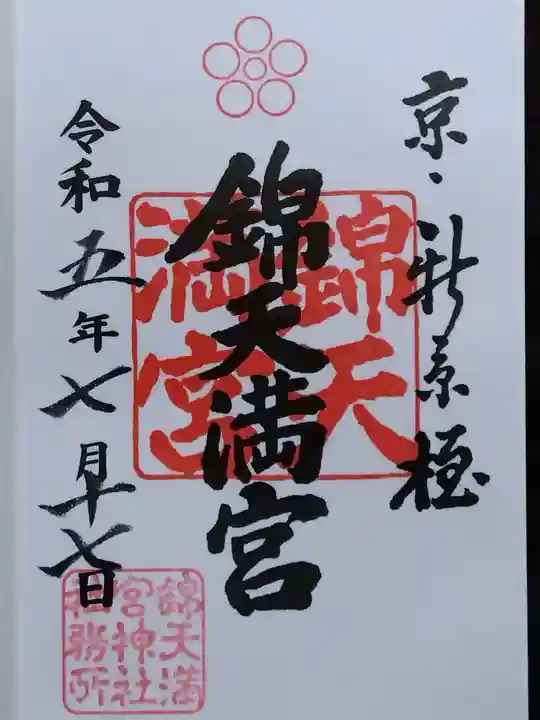 京・新京極
錦天満宮
錦天
満宮
令和五年七月十七日
錦天満
宮神社
社務所